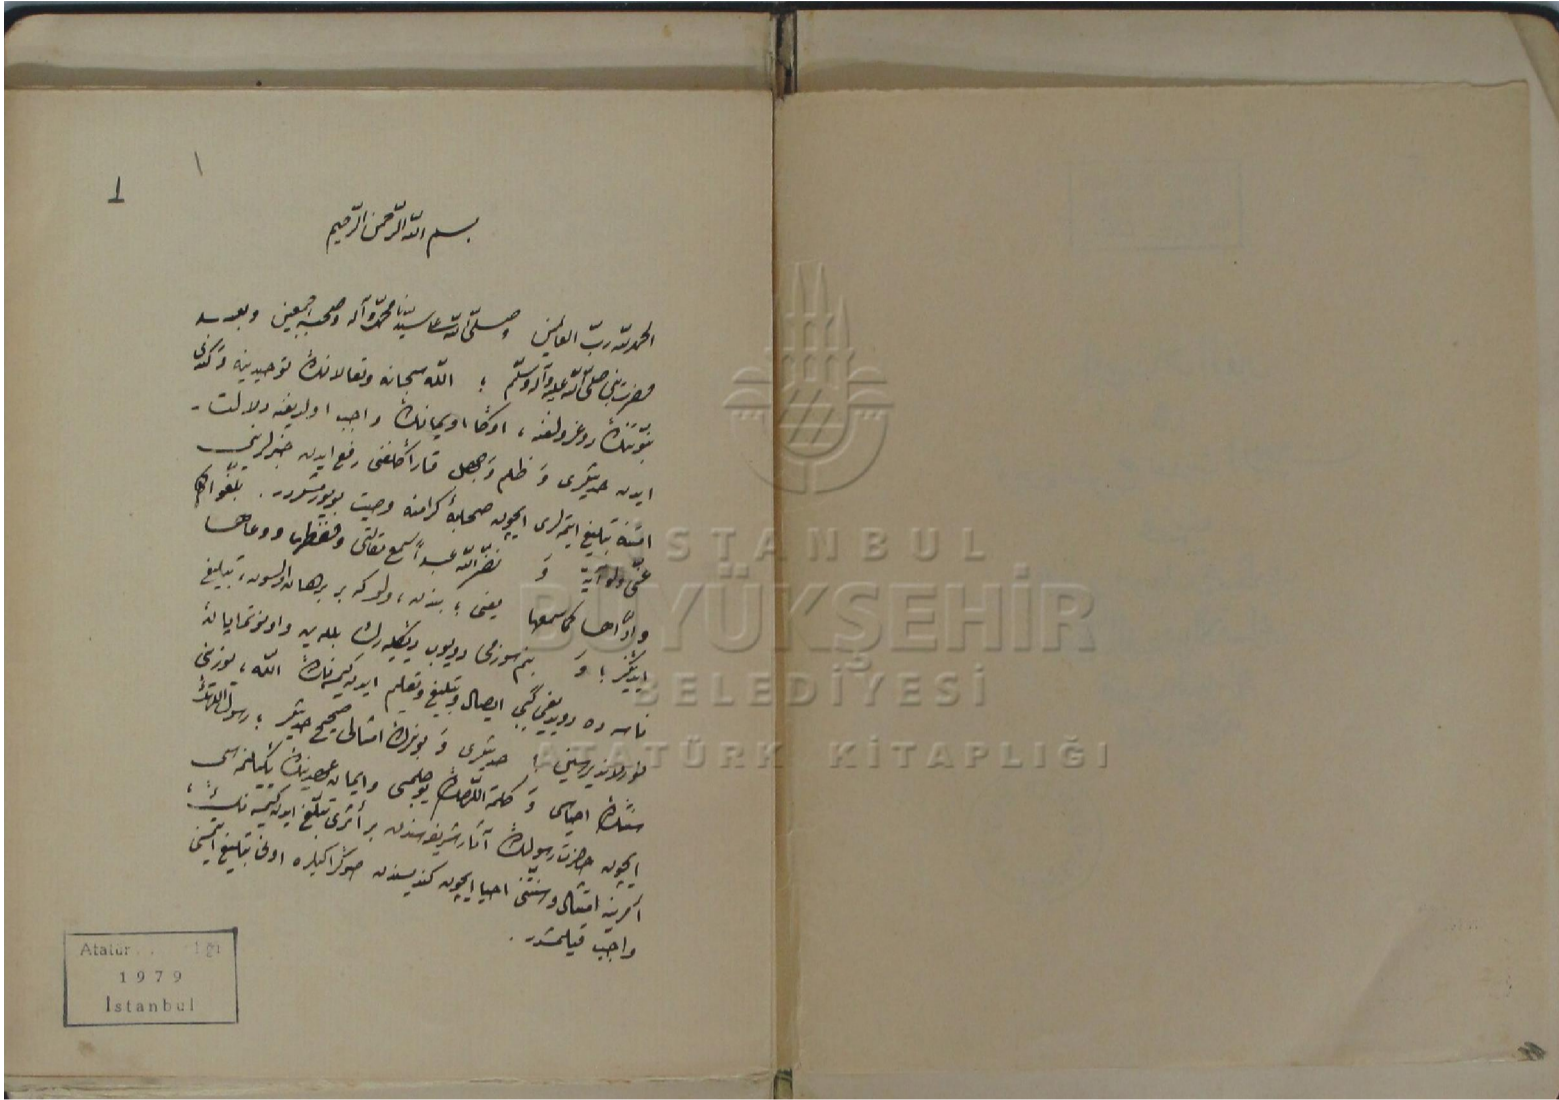 ١
1
بسم الله الرّحمن الرّحيم
الحمد لله ربّ العالمين وصلّى الله على سيّدنا محمّد وآله وصحبه اجمعين وبعد
حضرت نبى صلّى الله عليه وآله وسلّم ؛ الله سبحانه وتعالانڭ توحيدينه وَ كندى
نبوّتنڭ دوغرولغنه ، اوكا اويمانڭ واجب اولديغنه دلالت
ايدن حديثلرى وَ ظلم وَ جهل قارا كلغنى رفع ايدن خبرلرينى
امّته تبليغ ايتمه لرى ايچون صحابهٔ كرامنه وصيت بويورمشدر . بلّغوا
عنّى ولو آية وَ نضّر الله عبداً سمع مقالتى وحفظها ووعاها
وادّاها كما سمعها يعنى ؛ بندن ، ولو كه بر برهان اولسون ، تبليغ
ايديڭز ! وَ بنم سوزمى دويوب ديڭله يرك بلله ين واونوتمايان
ناسه ده دويديغى گبى ايصال وتبليغ وتعليم ايدن كيمسه نڭ الله ، يوزينى
نورلانديرسين ! حديثلرى وَ بونلرڭ امثالى صحيح حديثلر ؛ رسول اللهڭ
سنّتنڭ احياسى وَ كلمة اللّهڭ يوجلمسى وايمان عهدينڭ يڭيلنمه سى
ايچون حضرت رسولڭ آثار شريفه سندن بر أثرى تبليغ ايدن كيمسه نڭ ،
امرينه امتثال وسنّتنى احيا ايچون كنديسندن صوڭراكيلره اونى تبليغ ايتمسنى
واجب قيلمشدر .
1979
İstanbul
İSTANBUL
BÜYÜKŞEHİR
BELEDİYESİ
ATATÜRK KİTAPLIĞI